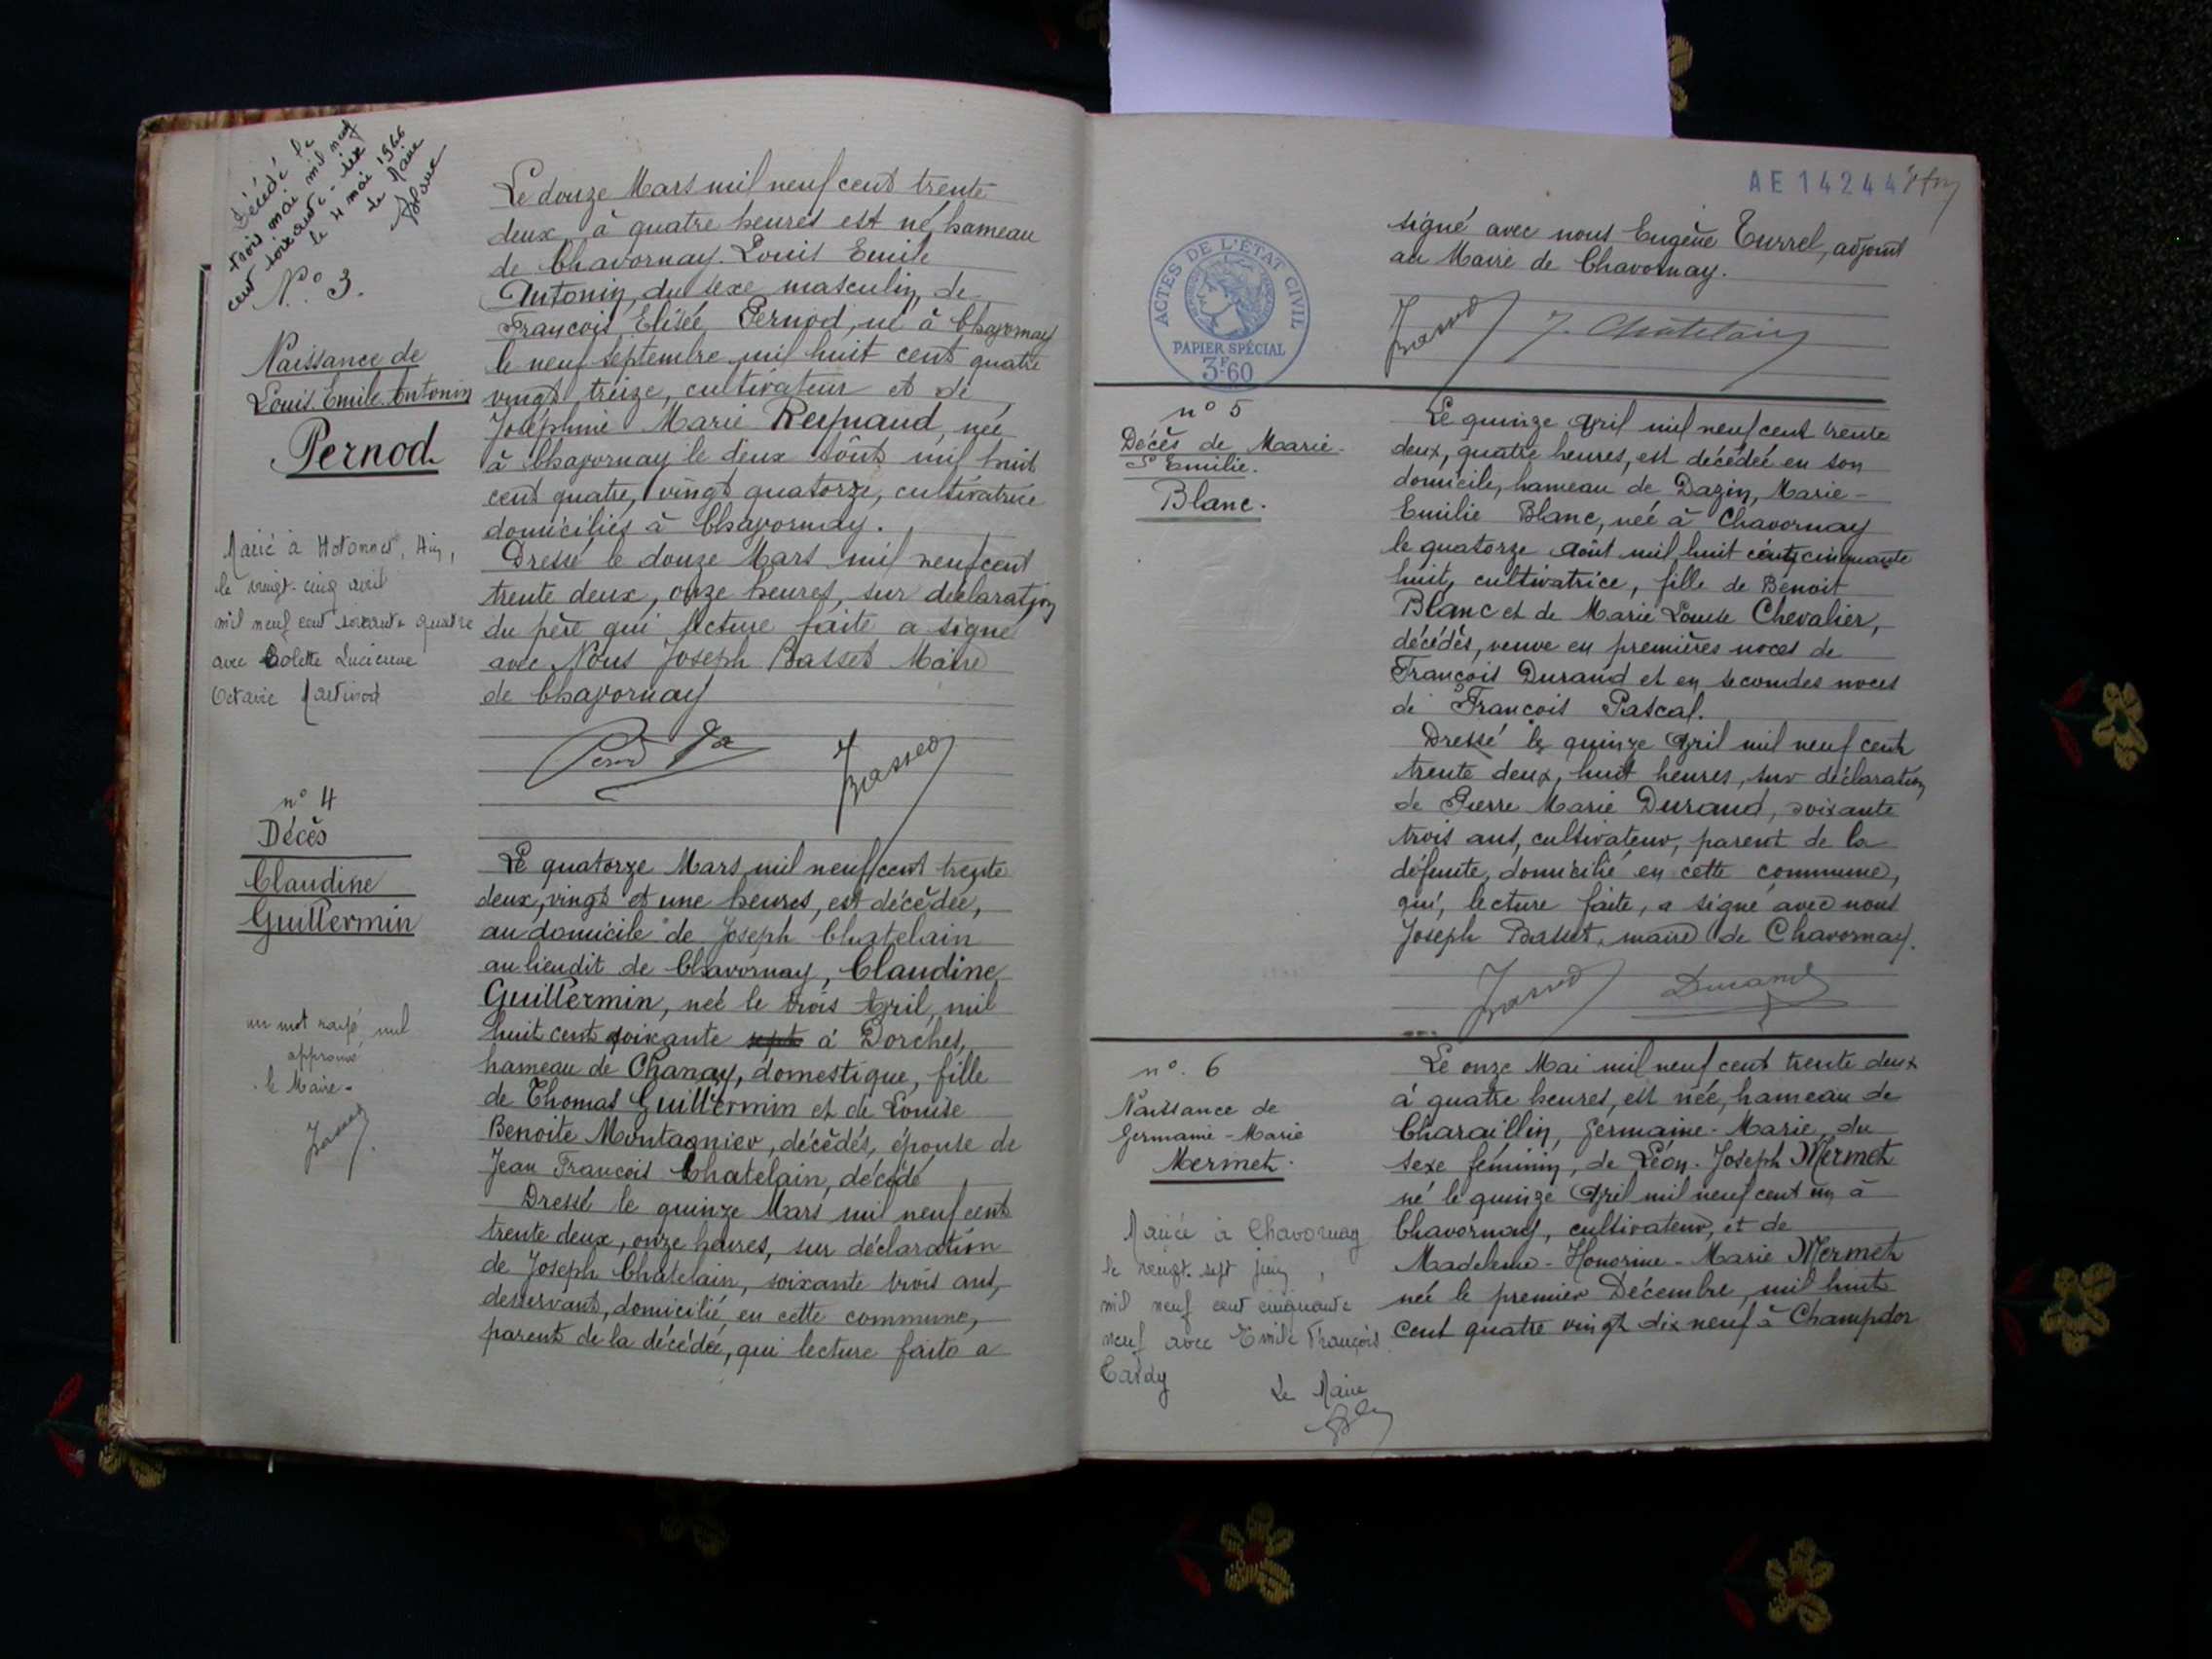 Décédé le
trois mai mil neuf
cent soixante-six
le 4 mai 1966
Le Maire
Blanc
N° 3.
Naissance de
Louis Emile Antonin
Pernod
Marié à Hotonnes, Ain,
le vingt-cinq avril
mil neuf cent soixante quatre
avec Colette Lucienne
Octavie Martinod
Le douze Mars mil neuf cent trente
deux, à quatre heures est né, hameau
de Chavornay, Louis Emile
Antonin, du sexe masculin, de
François Elisée Pernod, né à Chavornay
le neuf septembre mil huit cent quatre
vingt treize, cultivateur et de
Joséphine Marie Reynaud, née
à Chavornay le deux Août mil huit
cent quatre vingt quatorze, cultivatrice
domiciliés à Chavornay.
Dressé le douze Mars mil neuf cent
trente deux, onze heures, sur déclaration
du père qui lecture faite a signé
avec Nous Joseph Basset Maire
de Chavornay
Basset
n° 4
Décès
Claudine
Guillermin
un mot rayé nul
approuvé
le Maire
Basset
Le quatorze Mars mil neuf cent trente
deux, vingt et une heures, est décédée,
au domicile de Joseph Chatelain
au lieudit de Chavornay, Claudine
Guillermin, née le trois Avril mil
huit cent soixante sept à Dorches,
hameau de Chanay, domestique, fille
de Thomas Guillermin et de Louise
Benoite Montagnier, décédés, épouse de
Jean François Chatelain, décédé
Dressé le quinze Mars mil neuf cent
trente deux, onze heures, sur déclaration
de Joseph Chatelain, soixante trois ans,
desservant, domicilié en cette commune,
parent de la décédée, qui lecture faite a
AE 14244
ACTES DE L'ÉTAT CIVIL
PAPIER SPÉCIAL
3F60
signé avec nous Eugène Turrel, adjoint
au Maire de Chavornay.
Basset J. Chatelain
n° 5
Décès de Marie-
Emilie.
Blanc.
Le quinze Avril mil neuf cent trente
deux, quatre heures, est décédée en son
domicile, hameau de Dazin, Marie-
Emilie Blanc, née à Chavornay
le quatorze Août mil huit cent cinquante
huit, cultivatrice, fille de Benoit
Blanc et de Marie Louise Chevalier,
décédés, veuve en premières noces de
François Durand et en secondes noces
de François Pascal.
Dressé le quinze Avril mil neuf cent
trente deux, huit heures, sur déclaration
de Pierre Marie Durand, soixante
trois ans, cultivateur, parent de la
défunte, domicilié en cette commune,
qui, lecture faite, a signé avec nous
Joseph Basset, maire de Chavornay.
Basset Durand
n° 6
Naissance de
Germaine-Marie
Mermet.
Mariée à Chavornay
le vingt-sept juin,
mil neuf cent cinquante
neuf avec Emile François
Tardy
Le Maire
Le onze Mai mil neuf cent trente deux
à quatre heures, est née, hameau de
Charaillin, Germaine-Marie, du
sexe féminin, de Léon-Joseph Mermet
né le quinze Avril mil neuf cent un à
Chavornay, cultivateur, et de
Madeleine-Honorine-Marie Mermet
née le premier Décembre mil huit
cent quatre vingt dix neuf à Champdor